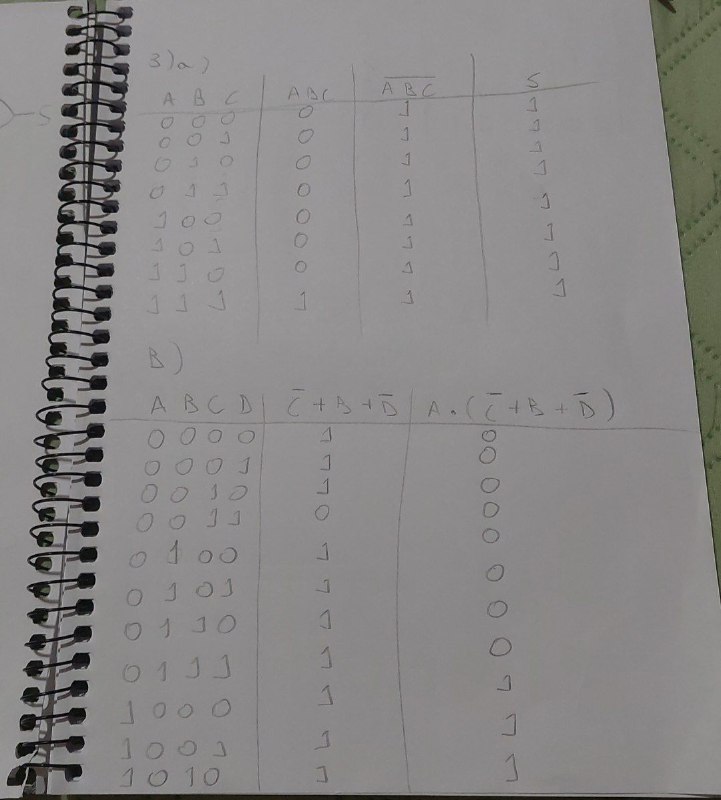 S
3)a)
A B C | ABC | A̅ ̅B̅ ̅C̅ | S
0 0 0 | 0 | 1 | 1
0 0 1 | 0 | 1 | 1
0 1 0 | 0 | 1 | 1
0 1 1 | 0 | 1 | 1
1 0 0 | 0 | 1 | 1
1 0 1 | 0 | 1 | 1
1 1 0 | 0 | 1 | 1
1 1 1 | 1 | 1 | 1
B)
A B C D | C̅ + B + D̅ | A . (C̅ + B + D̅)
0 0 0 0 | 1 | 0
0 0 0 1 | 1 | 0
0 0 1 0 | 1 | 0
0 0 1 1 | 0 | 0
0 1 0 0 | 1 | 0
0 1 0 1 | 1 | 0
0 1 1 0 | 1 | 0
0 1 1 1 | 1 | 0
1 0 0 0 | 1 | 1
1 0 0 1 | 1 | 1
1 0 1 0 | 1 | 1